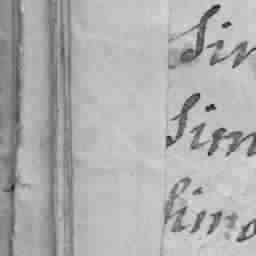 Sin
Sim
simo